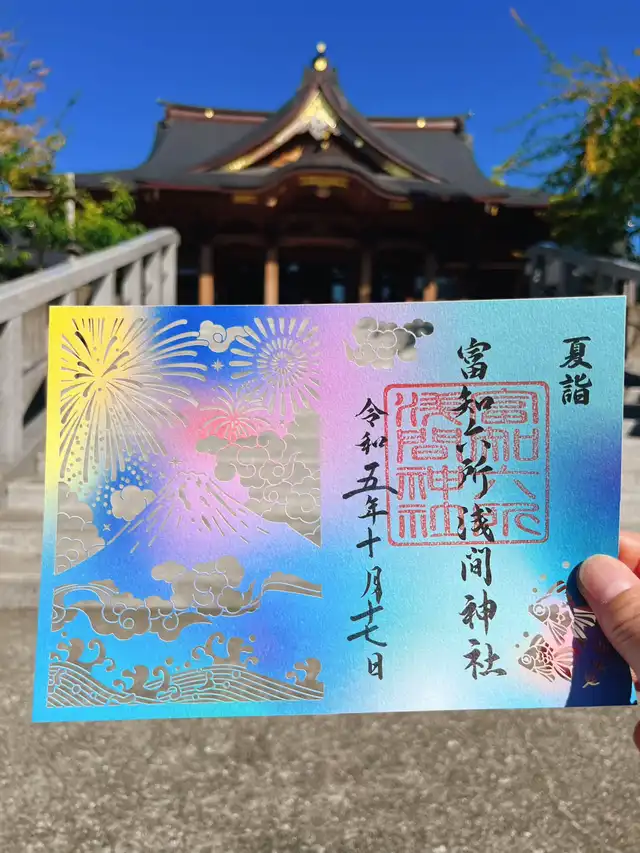 夏詣
富知六所浅間神社
富知六所
浅間神社
令和五年十月十七日